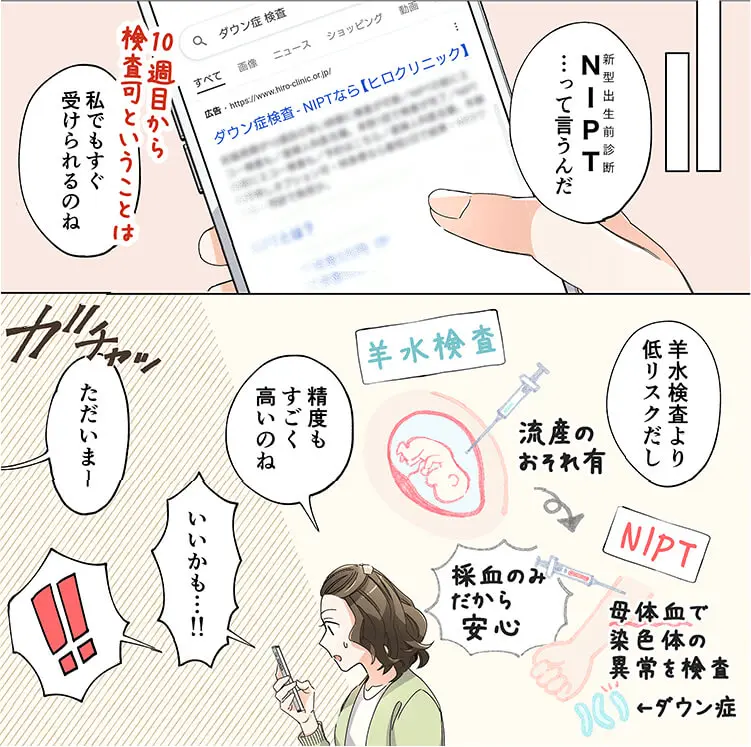 新型出生前診断
NIPT
…って言うんだ
ダウン症 検査
すべて 画像 ニュース ショッピング 動画
広告・https://www.hiro-clinic.or.jp/
ダウン症検査 - NIPTなら【ヒロクリニック】
10週目から
検査可ということは
私でもすぐ
受けられるのね
羊水検査より
低リスクだし
羊水検査
流産の
おそれ有
NIPT
採血のみ
だから
安心
母体血で
染色体の
異常を検査
←ダウン症
精度も
すごく
高いのね
いいかも…!!
ガチャッ
ただいま〜
!!